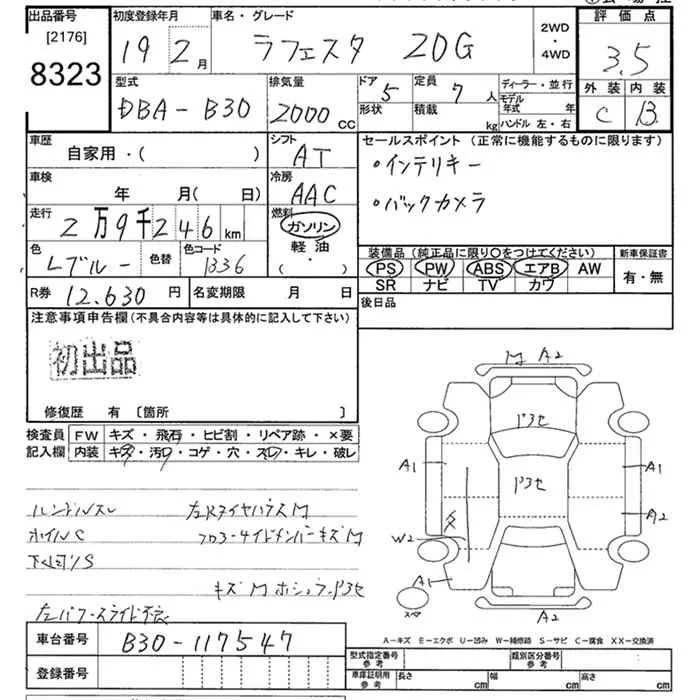 出品番号
[2176]
8323
初度登録年月
19 2月
車名・グレード
ラフェスタ 20G
2WD
・
4WD
評価点
3.5
外装 内装
C B
型式
DBA-B30
排気量
2000 CC
ドア 5
形状
定員 7人
積載 kg
ディーラー・並行
モデル年式 年
ハンドル 左・右
車歴
自家用・( )
シフト
AT
車検
年 月( 日)
冷房
AAC
走行
2万9千246km
燃料
ガソリン
軽油
( ・ )
色
Lブルー
色替
色コード
B36
R券 12,630円
名変期限 月 日
セールスポイント(正常に機能するものに限ります)
・インテリキー
・バックカメラ
装備品(純正品に限り〇をつけてください)
PS PW ABS エアB AW
SR ナビ TV カワ
新車保証書
有・無
後日品
注意事項申告欄(不具合内容等は具体的に記入して下さい)
初出品
修復歴 有 〔箇所 〕
検査員
記入欄
FW キズ・飛石・ヒビ割・リペア跡・×要
内装 キズ・汚れ・コゲ・穴・スレ・キレ・破レ
ハンドルスレ
左Rタイヤハウス M
ホイルC
フロア サイドメンバーキズM
下回りS
キズM
左パワースライド不良
M A2
ドヨセ
ドヨセ
A1
A1
A2
W2
A1
A2
スペア
A-キズ E-エクボ U-凹み W-補修跡 S-サビ C-腐食 XX-交換済
車台番号 B30-117547
登録番号
型式指定番号
参考
類別区分番号
参考
車庫証明用
参考
長さ cm
幅 cm
高さ cm